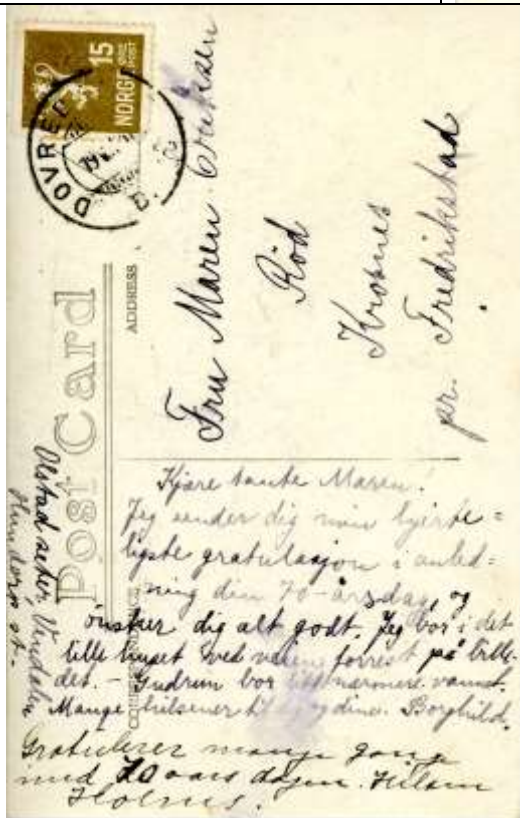 15
NORGE
DOVREB
Post Card
ADDRESS
Fru Maren Eriksen
Rød
Kroknes
pr. Fredrikstad
Olstad seter. Venabu
Hundorp st.
Kjære tante Maren!
Jeg sender dig min hjerte=
ligste gratulasjon i anled=
ning din 70-årsdag, og
ønsker dig alt godt. Jeg bor i det
lille huset ved veien forrest på bille-
det. - Gudrun bor litt nærmere vannet.
Mange hilsener til dig og dine. Borghild.
Gratulerer mange gang
med 70 aars dagen. Hilsen